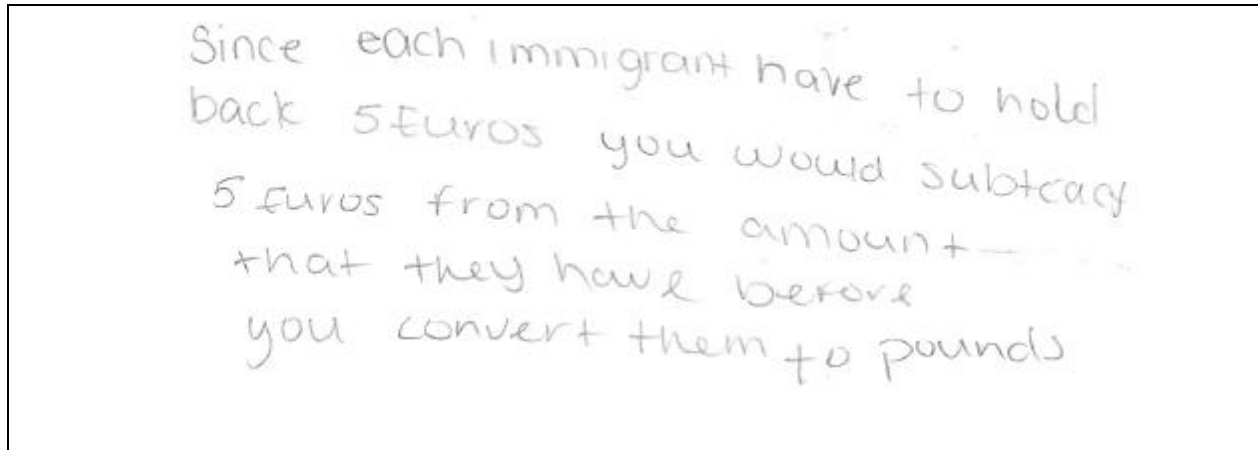 Since each immigrant have to hold
back 5 Euros you would subtract
5 Euros from the amount
that they have before
you convert them to pounds